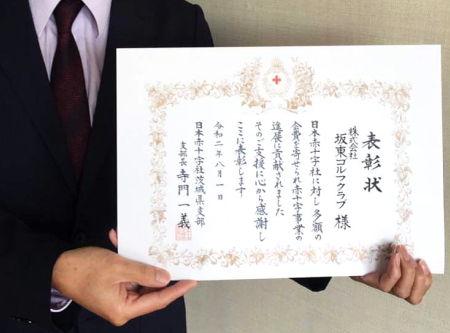 表彰状
株式会社
坂東ゴルフクラブ 様
日本赤十字社に対し多額の
会費を寄せられ赤十字事業の
進展に貢献されました
そのご支援に心から感謝し
ここに表彰します
令和二年八月一日
日本赤十字社茨城県支部
支部長 寺門一義